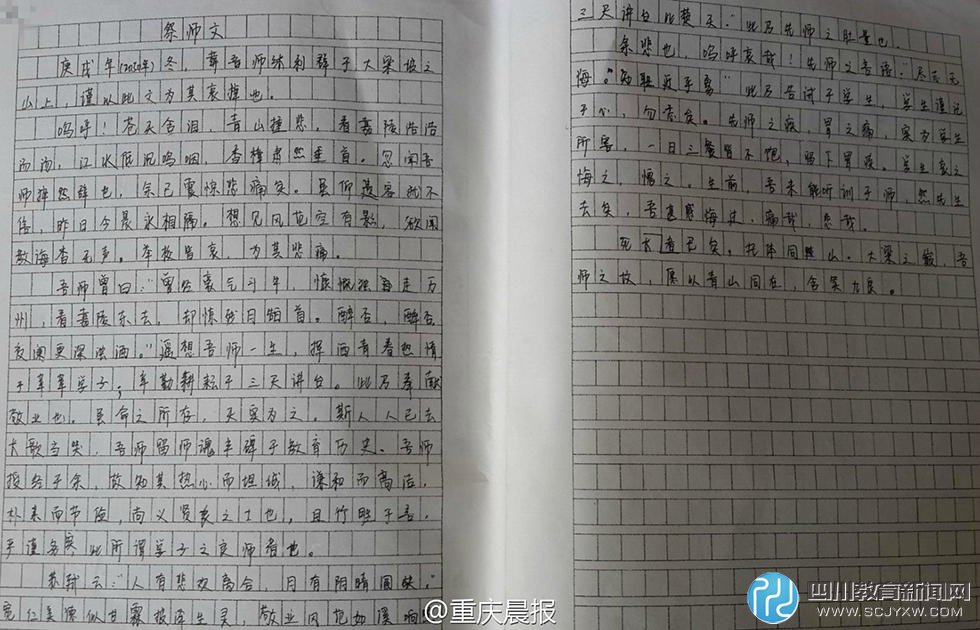 祭师文
庚戌年(2030年)冬，尊吾师林利群于大梁坡之
山上，谨以此文为其哀悼也。
呜呼！苍天含泪，青山捶悲，看嘉陵浩浩
而汤，江水低沉呜咽，香樟肃然垂首。忽闻吾
师择然辞也，余已震惊悲痛矣。虽仰遗容就不
信，昨日今晨永相隔。想见风范空有影，欲闻
教诲杳无声。举校皆哀，为其悲痛。
吾师曾曰："曾经豪气斗牛，慷慨独自走万
州，看嘉陵东去，却惊我月如首。醉否，醉否
夜阑更深浊酒。"遥想吾师一生，挥洒青春热情
于莘莘学子，辛勤耕耘于三尺讲台。此乃奉献
敬业也。虽命之所存，天实为之。斯人人已去
大歌当哭，吾师留师魂丰碑于教育历史。吾师
授结于余，故知其热心而坦诚，谦和而高洁，
朴素而节俭，尚义贤哀之士也，且竹胜于吾，
严谨务实 此所谓学子之良师者也。
苏轼云："人有悲欢离合，月有阴晴圆缺。"
宽仁美德似甘霖披泽生灵，敬业风范如溪响
三尺讲台比楚天。"此乃先师之肚量也。
余悲也，呜呼哀哉！先师之告语："尽我无
悔。" 此乃告诫于学生，学生谨记
于心，勿忘矣。先师之疾，胃之痛，实为学生
所害，一日三餐皆不饱，留下胃疾。学生哀之
悔之，憎之。生前，吾未能听训于师，然先生
去矣，吾甚感悔过，痛哉，悲哉。
死者已矣，托体同山。大梁之巅，吾
师之故，愿以青山同在，含笑九泉。
@重庆晨报
四川教育新闻网
WWW.SCJYXW.COM